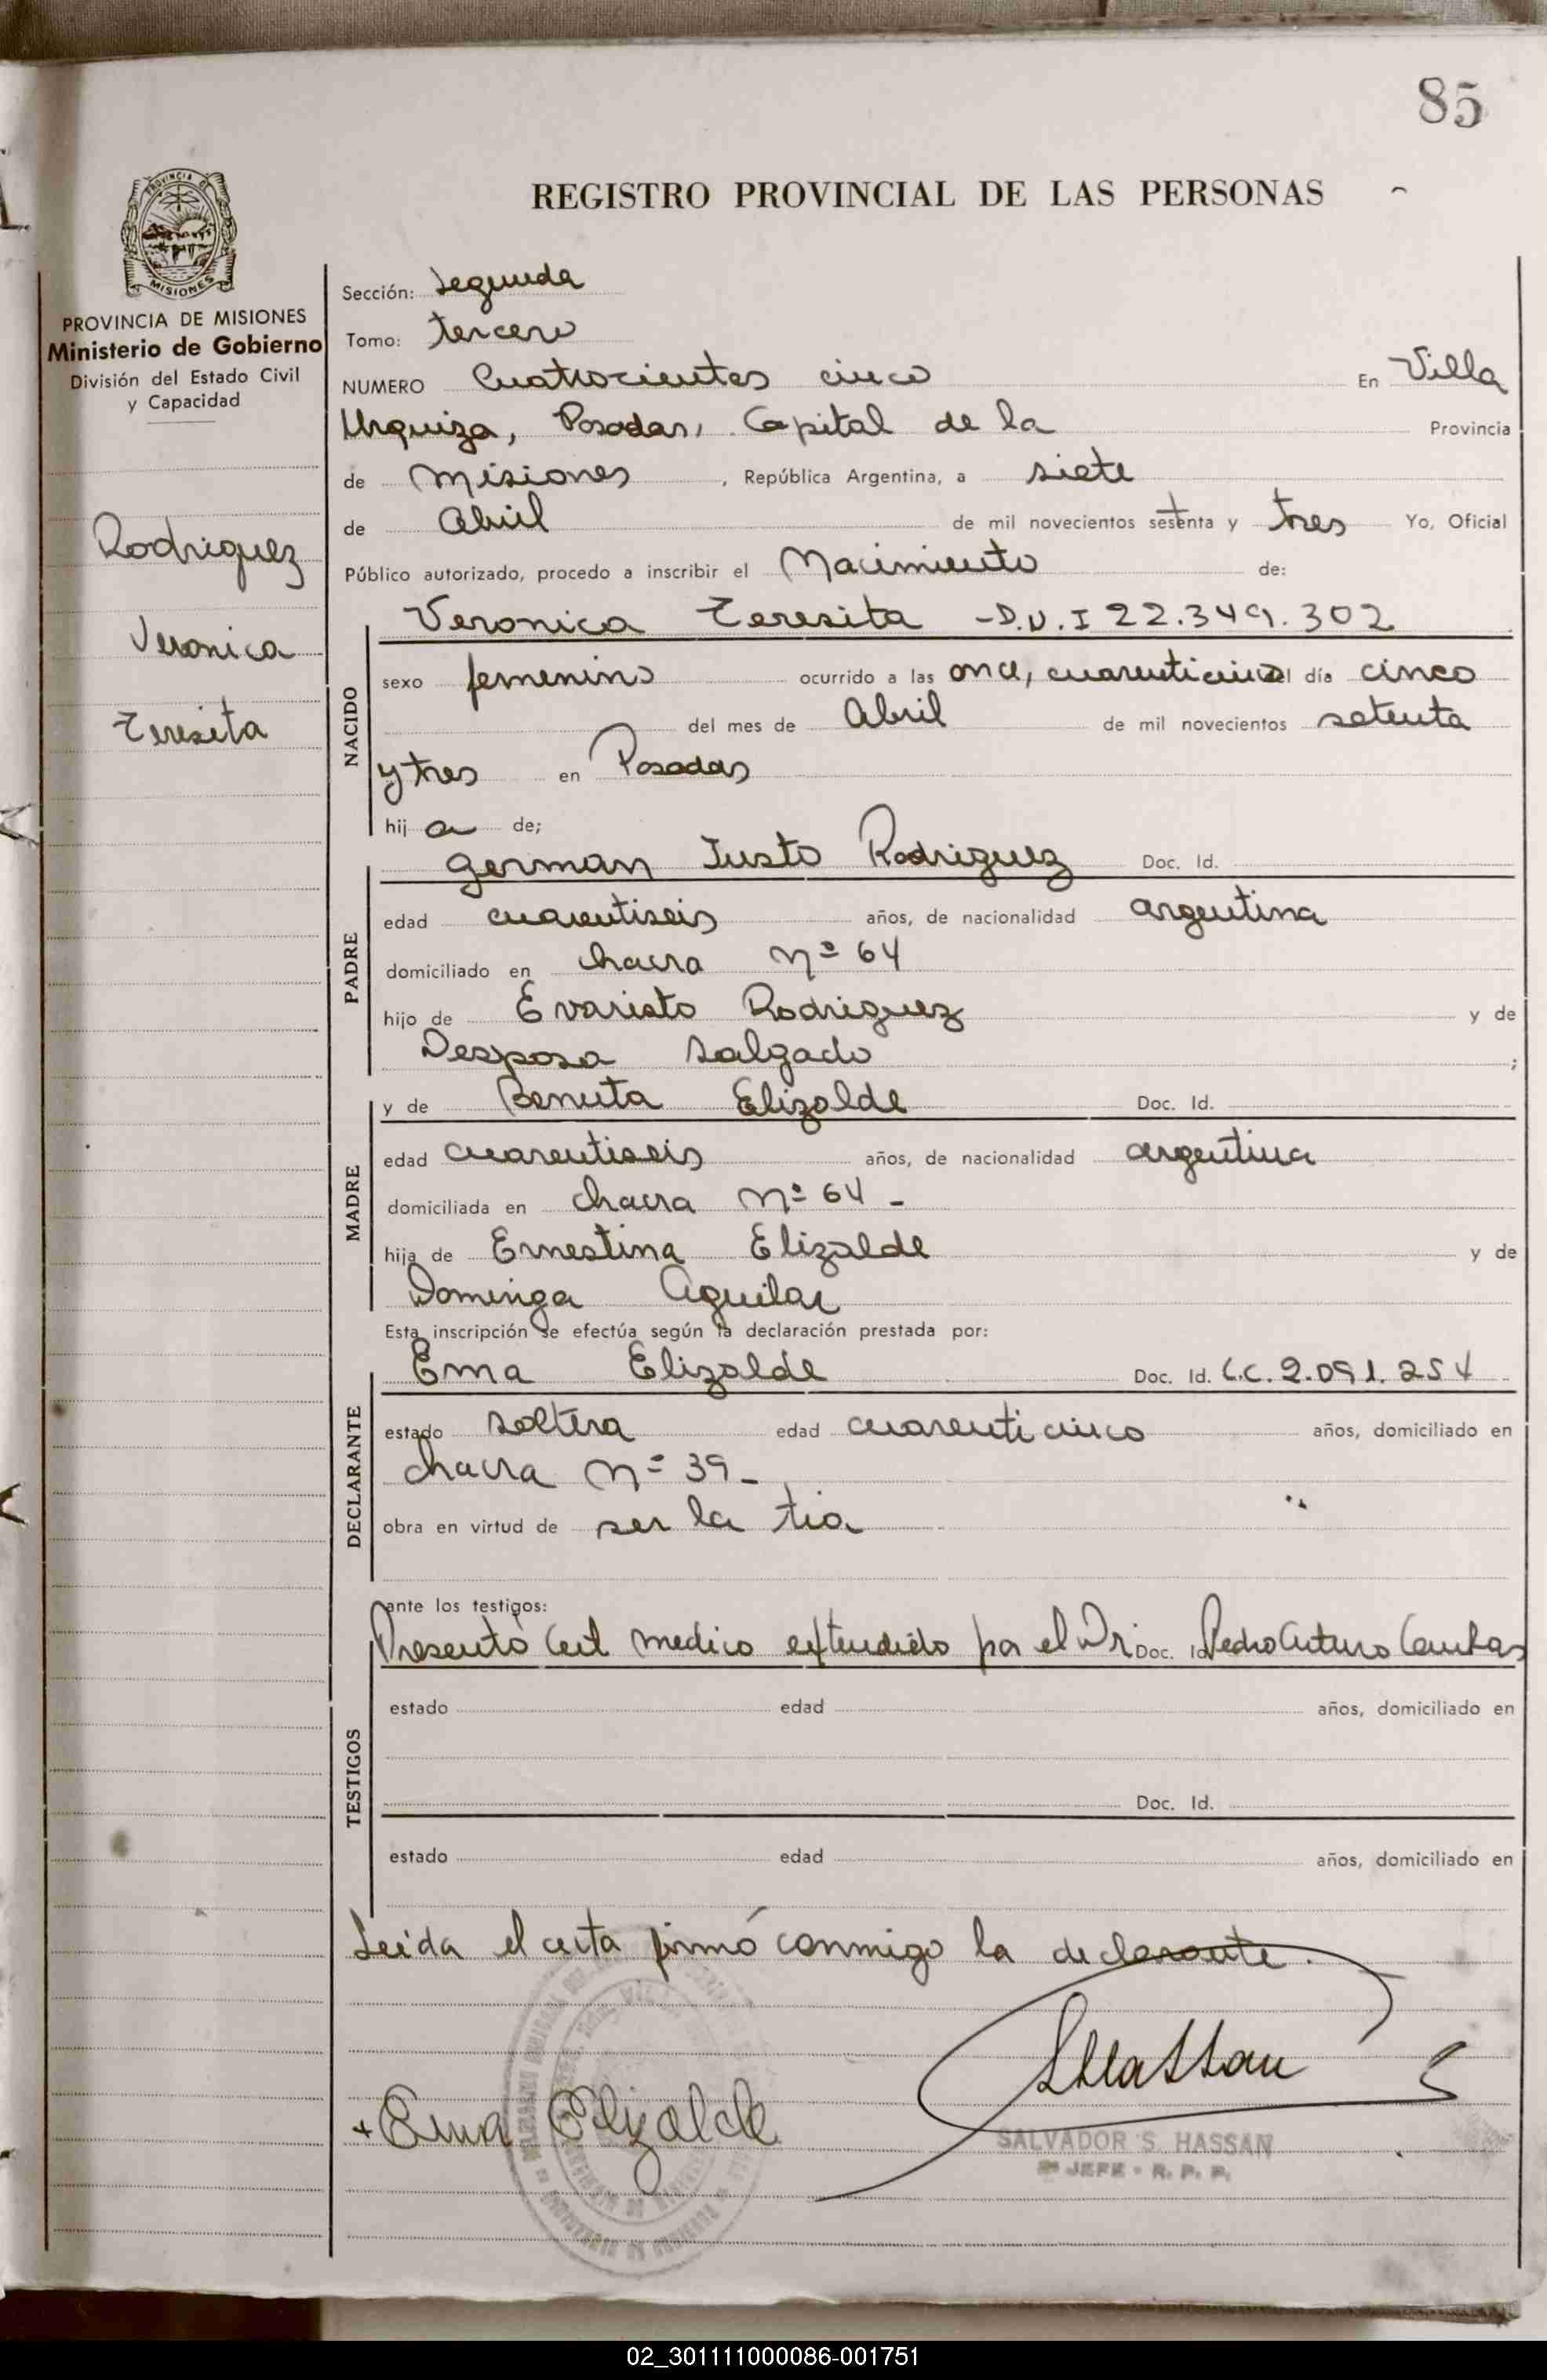 85
REGISTRO PROVINCIAL DE LAS PERSONAS
PROVINCIA DE MISIONES
Ministerio de Gobierno
División del Estado Civil
y Capacidad
Rodriguez
Veronica
Teresita
Sección: Segunda
Tomo: tercero
NUMERO Cuatrocientos cinco En Villa
Urquiza, Posadas, Capital de la Provincia
de Misiones, República Argentina, a siete
de Abril de mil novecientos setenta y tres Yo, Oficial
Público autorizado, procedo a inscribir el Nacimiento de:
Veronica Teresita -D.N.I 22.349.302
NACIDO
sexo femenino ocurrido a las once, cuarenticinco el día cinco
del mes de Abril de mil novecientos setenta
y tres en Posadas
hij a de;
German Justo Rodriguez Doc. Id.
PADRE
edad cuarentiseis años, de nacionalidad argentina
domiciliado en chacra Nº 64
hijo de Evaristo Rodriguez y de
Desposa Salgado ;
y de Benita Elizalde Doc. Id.
MADRE
edad cuarentiseis años, de nacionalidad argentina
domiciliada en chacra Nº 64 -
hija de Ernestina Elizalde y de
Dominga Aguilar
Esta inscripción se efectúa según la declaración prestada por:
Ema Elizalde Doc. Id. L.C. 2.091.254
DECLARANTE
estado soltera edad cuarenticinco años, domiciliado en
chacra Nº 39 -
obra en virtud de ser la tia
ante los testigos:
Presentó Cert medico extendido por el Dr. Doc. Id. Pedro Arturo
TESTIGOS
estado edad años, domiciliado en
Doc. Id.
estado edad años, domiciliado en
Leida el acta firmó conmigo la declarante.
+ Ema Elizalde
SHassan
SALVADOR S. HASSAN
JEFE - R. P. P.
02_301111000086-001751